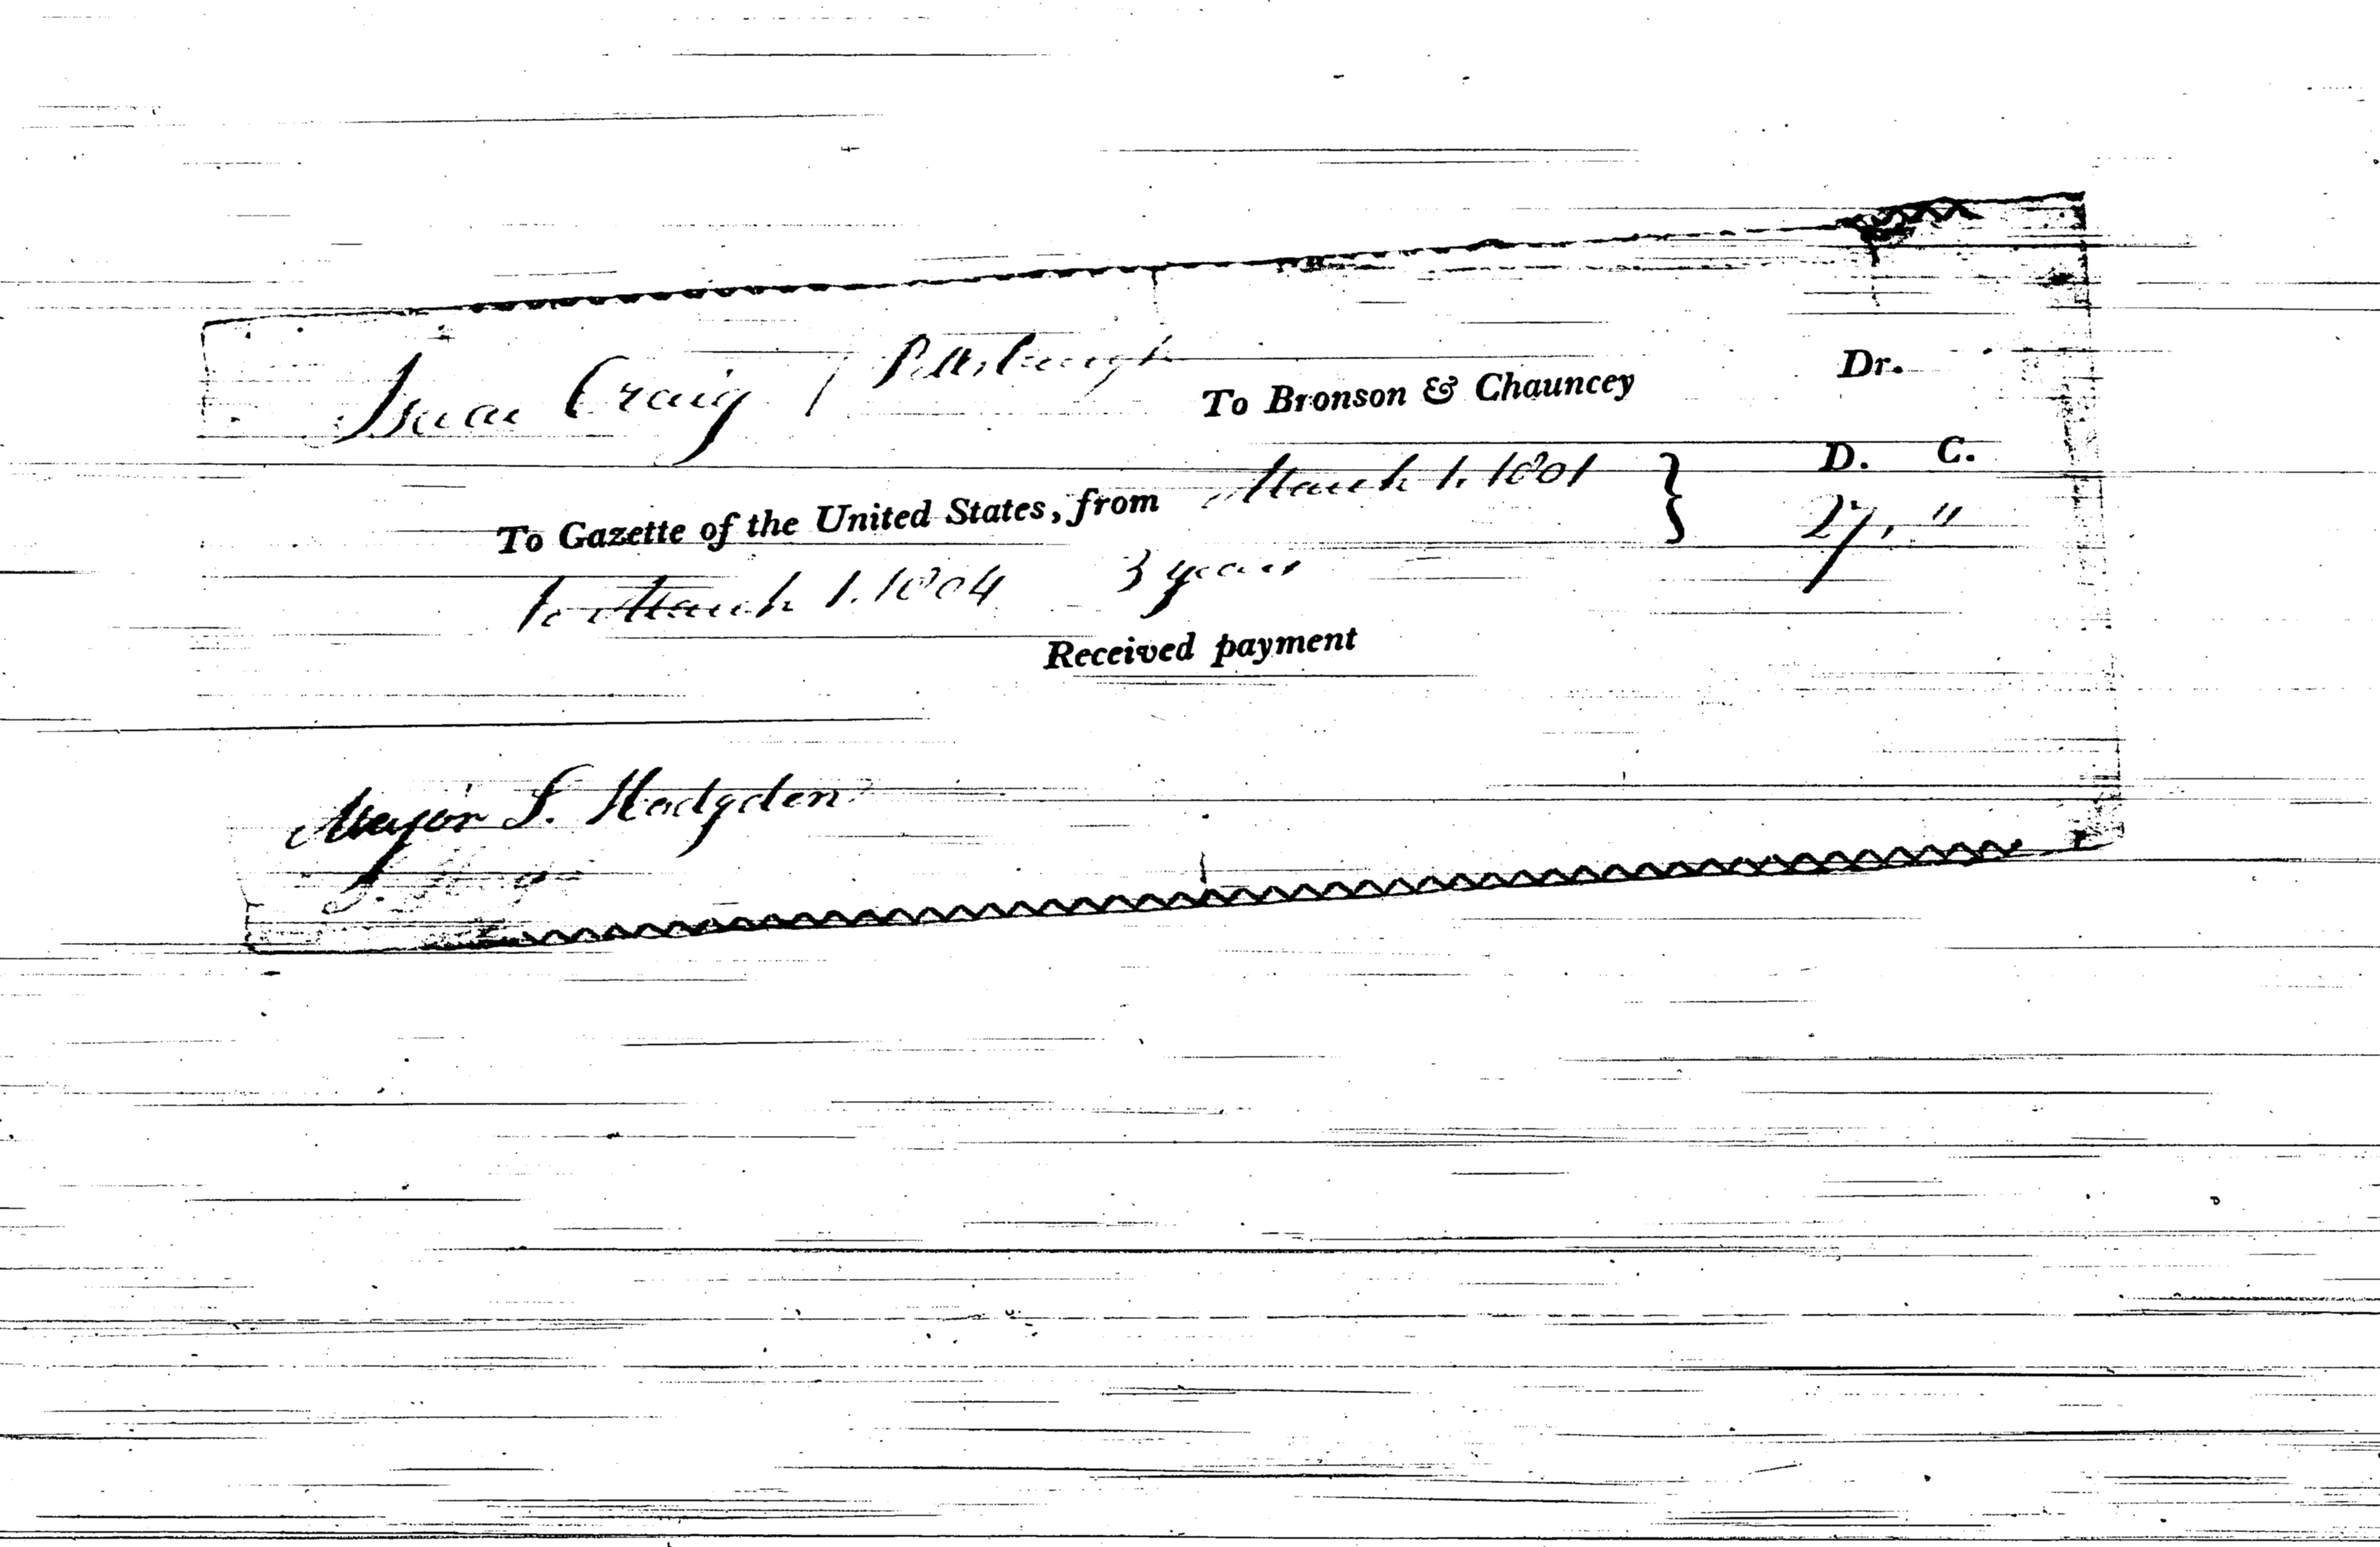 Isaac Craig / Pittsburgh To Bronson & Chauncey Dr.
D. C.
To Gazette of the United States, from March 1. 1801 } 27, "
to March 1. 1804 3 years
Received payment
Major S. Hodgden